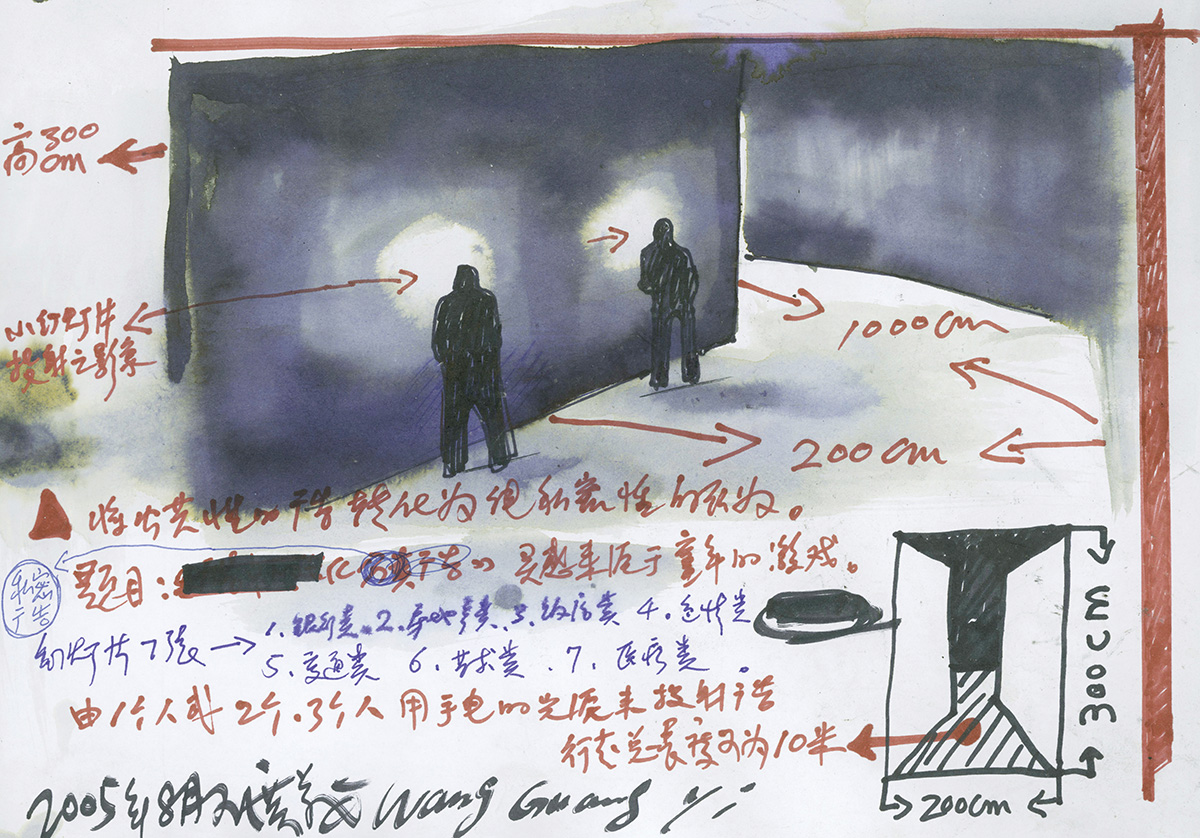 高300cm
小幻灯片
投射之影象
1000cm
200cm
将公共性的广告转化为很私密性的行为。
题目:《广告》灵感来源于童年的游戏。
私密广告
幻灯片7张→1.银行类.2.房地产类.3.饭店类 4.色情类
5.交通类 6.艺术类.7.医疗类.
由1个人或2个.3个人用手电的光源来投射广告
行走总长度为10米
300cm
200cm
2005年8月 Wang Guang Yi